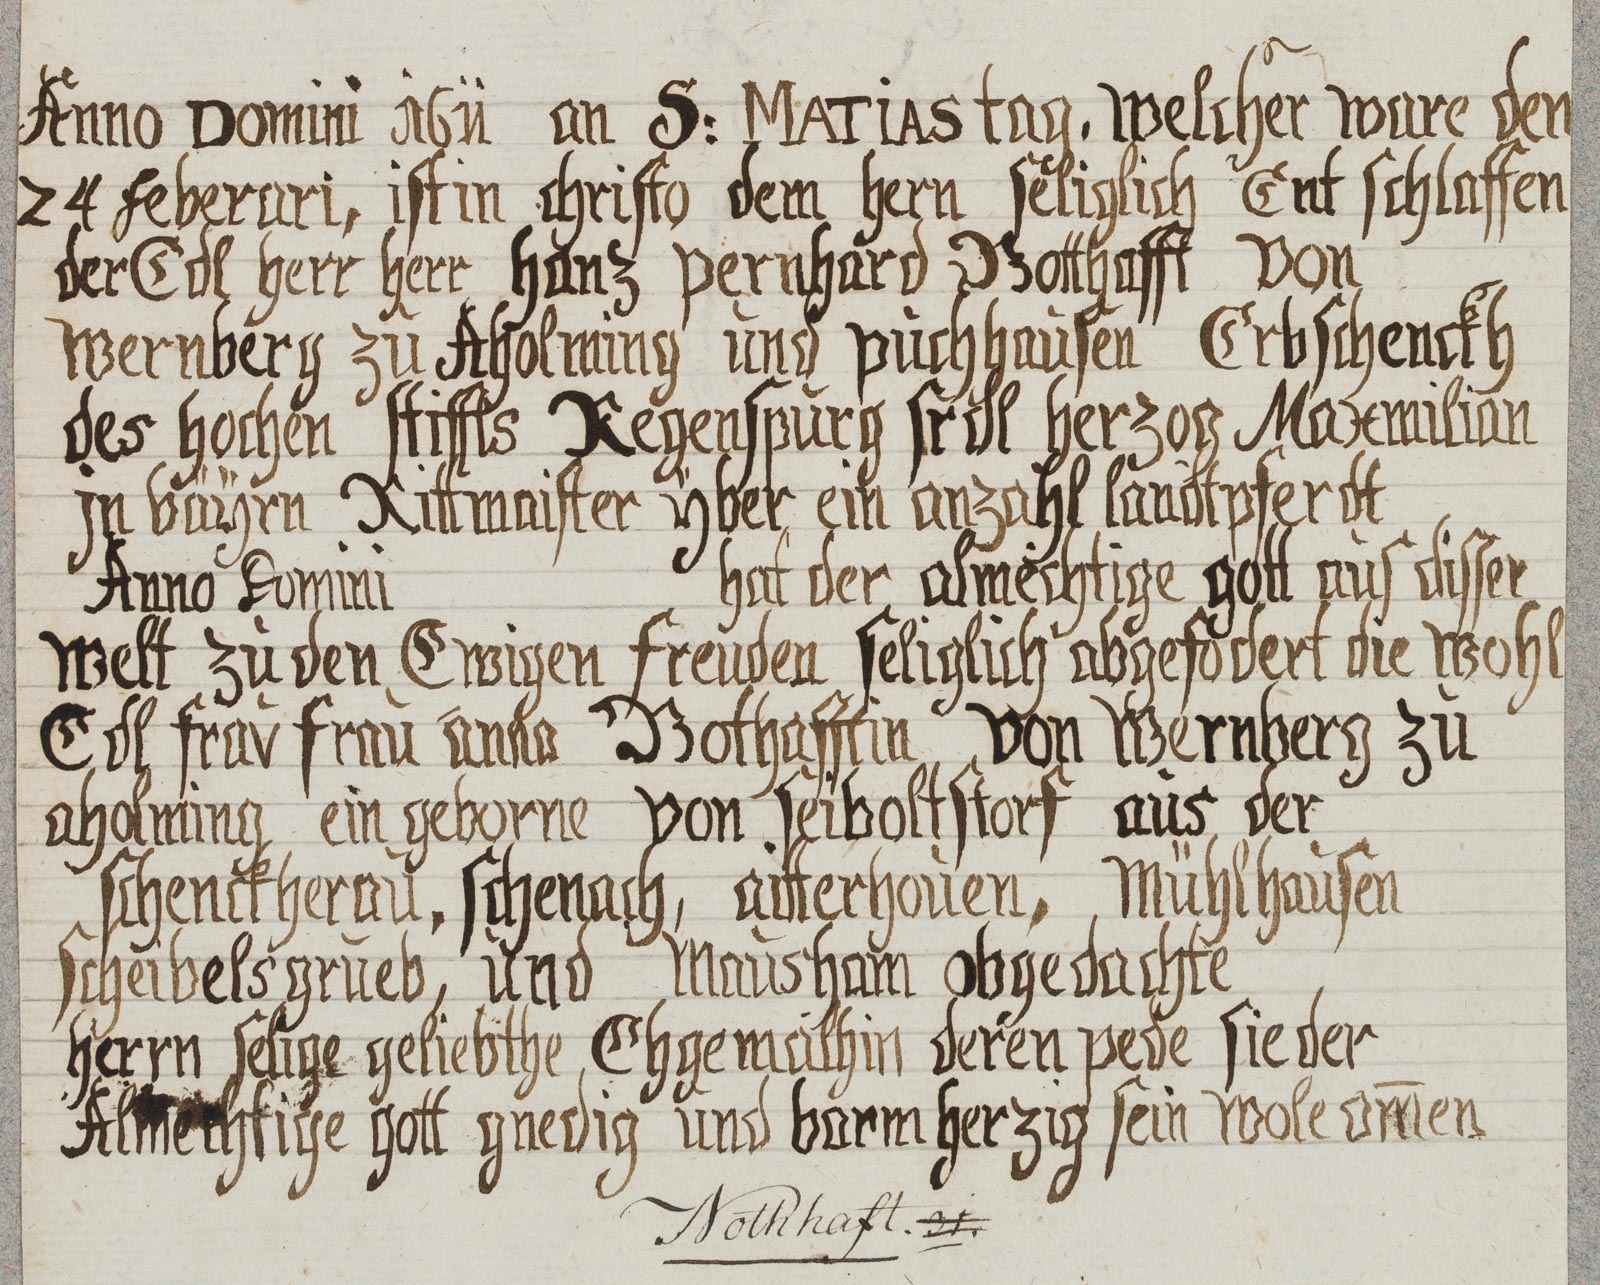 Anno Domini 1611 an S: MATIAS tag, welcher ware den
24 feberari, ist in christo dem hern seliglich Entschlaffen
der Edl herr herr hanz pernhard Notthafft von
wernberg zu Aholming und puchhausen Erbschenckh
des hochen stiffts Regenspurg frdl herzog Maxmilian
jn bäyrn Rittmaister yber ein anzahl landtpferdt
Anno Domini hat der almechtige gott aus disser
welt zu den Ewigen freuden seliglich abgefodert die wohl
Edl frav frau anna Nothafftin von Wernberg zu
aholming ein geborne von seiboltstorf aus der
schenckherau, schenach, aitterhouen, Mühlhausen
scheibelsgrueb, und Mausham obgedachte
herrn selige geliebthe Ehgemälhin deren pede sie der
Almechtige gott gnedig und barmherzig sein wole am̅en
Nothhaft. 31.